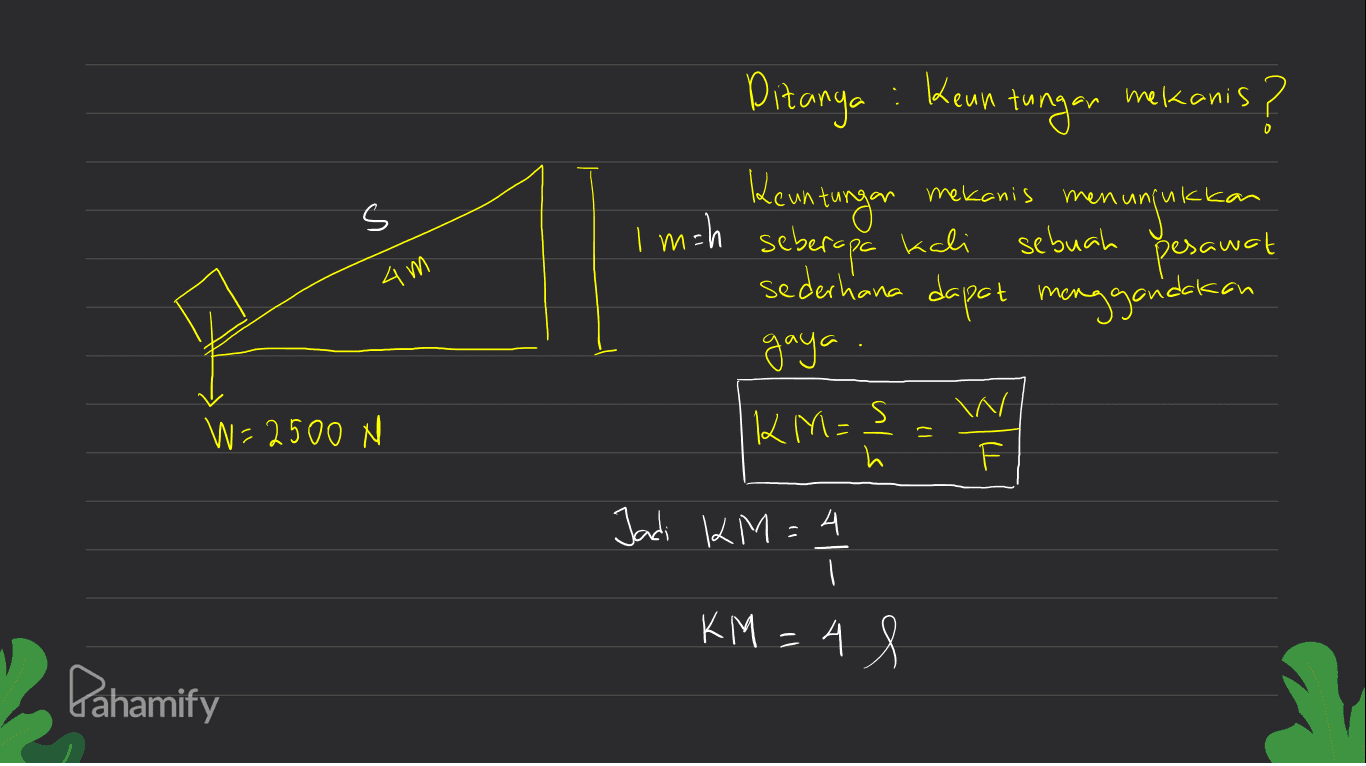 Ditanya : Keuntungan mekanis ?
Keuntungan mekanis menunjukkan
seberapa kali sebuah pesawat
sederhana dapat menggandakan
gaya .
S
4 m
1 m = h
W = 2500 N
KM = s/h = W/F
Jadi KM = 4/1
KM = 4
Pahamify